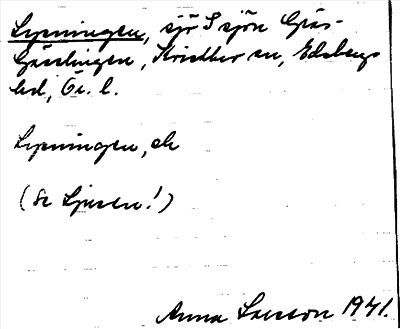 Lysningen, sjö S sjön Gräs-
Gässlingen, Kvistbro sn, Edsbergs
hd, Ör. l.
Lysningen, ok
(Se Ljusen!)
Anna Larsson 1941.